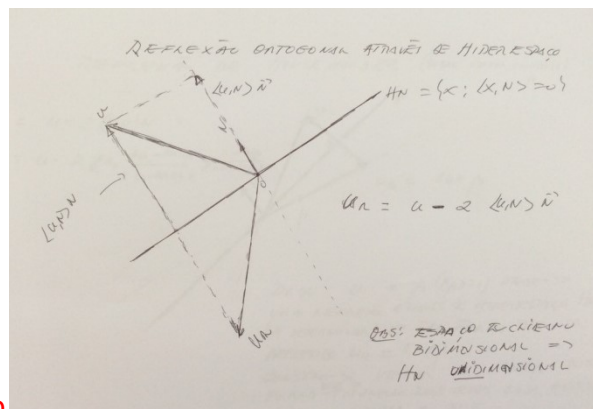 REFLEXÃO ORTOGONAL ATRAVÉS DE HIPERESPAÇO
<u,N> N⃗
H_N = {x; <x,N> = 0}
u
N
0
<u,N> N
u_r = u - 2 <u,N> N⃗
u_r
OBS: ESPAÇO EUCLIDEANO
BIDIMENSIONAL =>
H_N UNIDIMENSIONAL